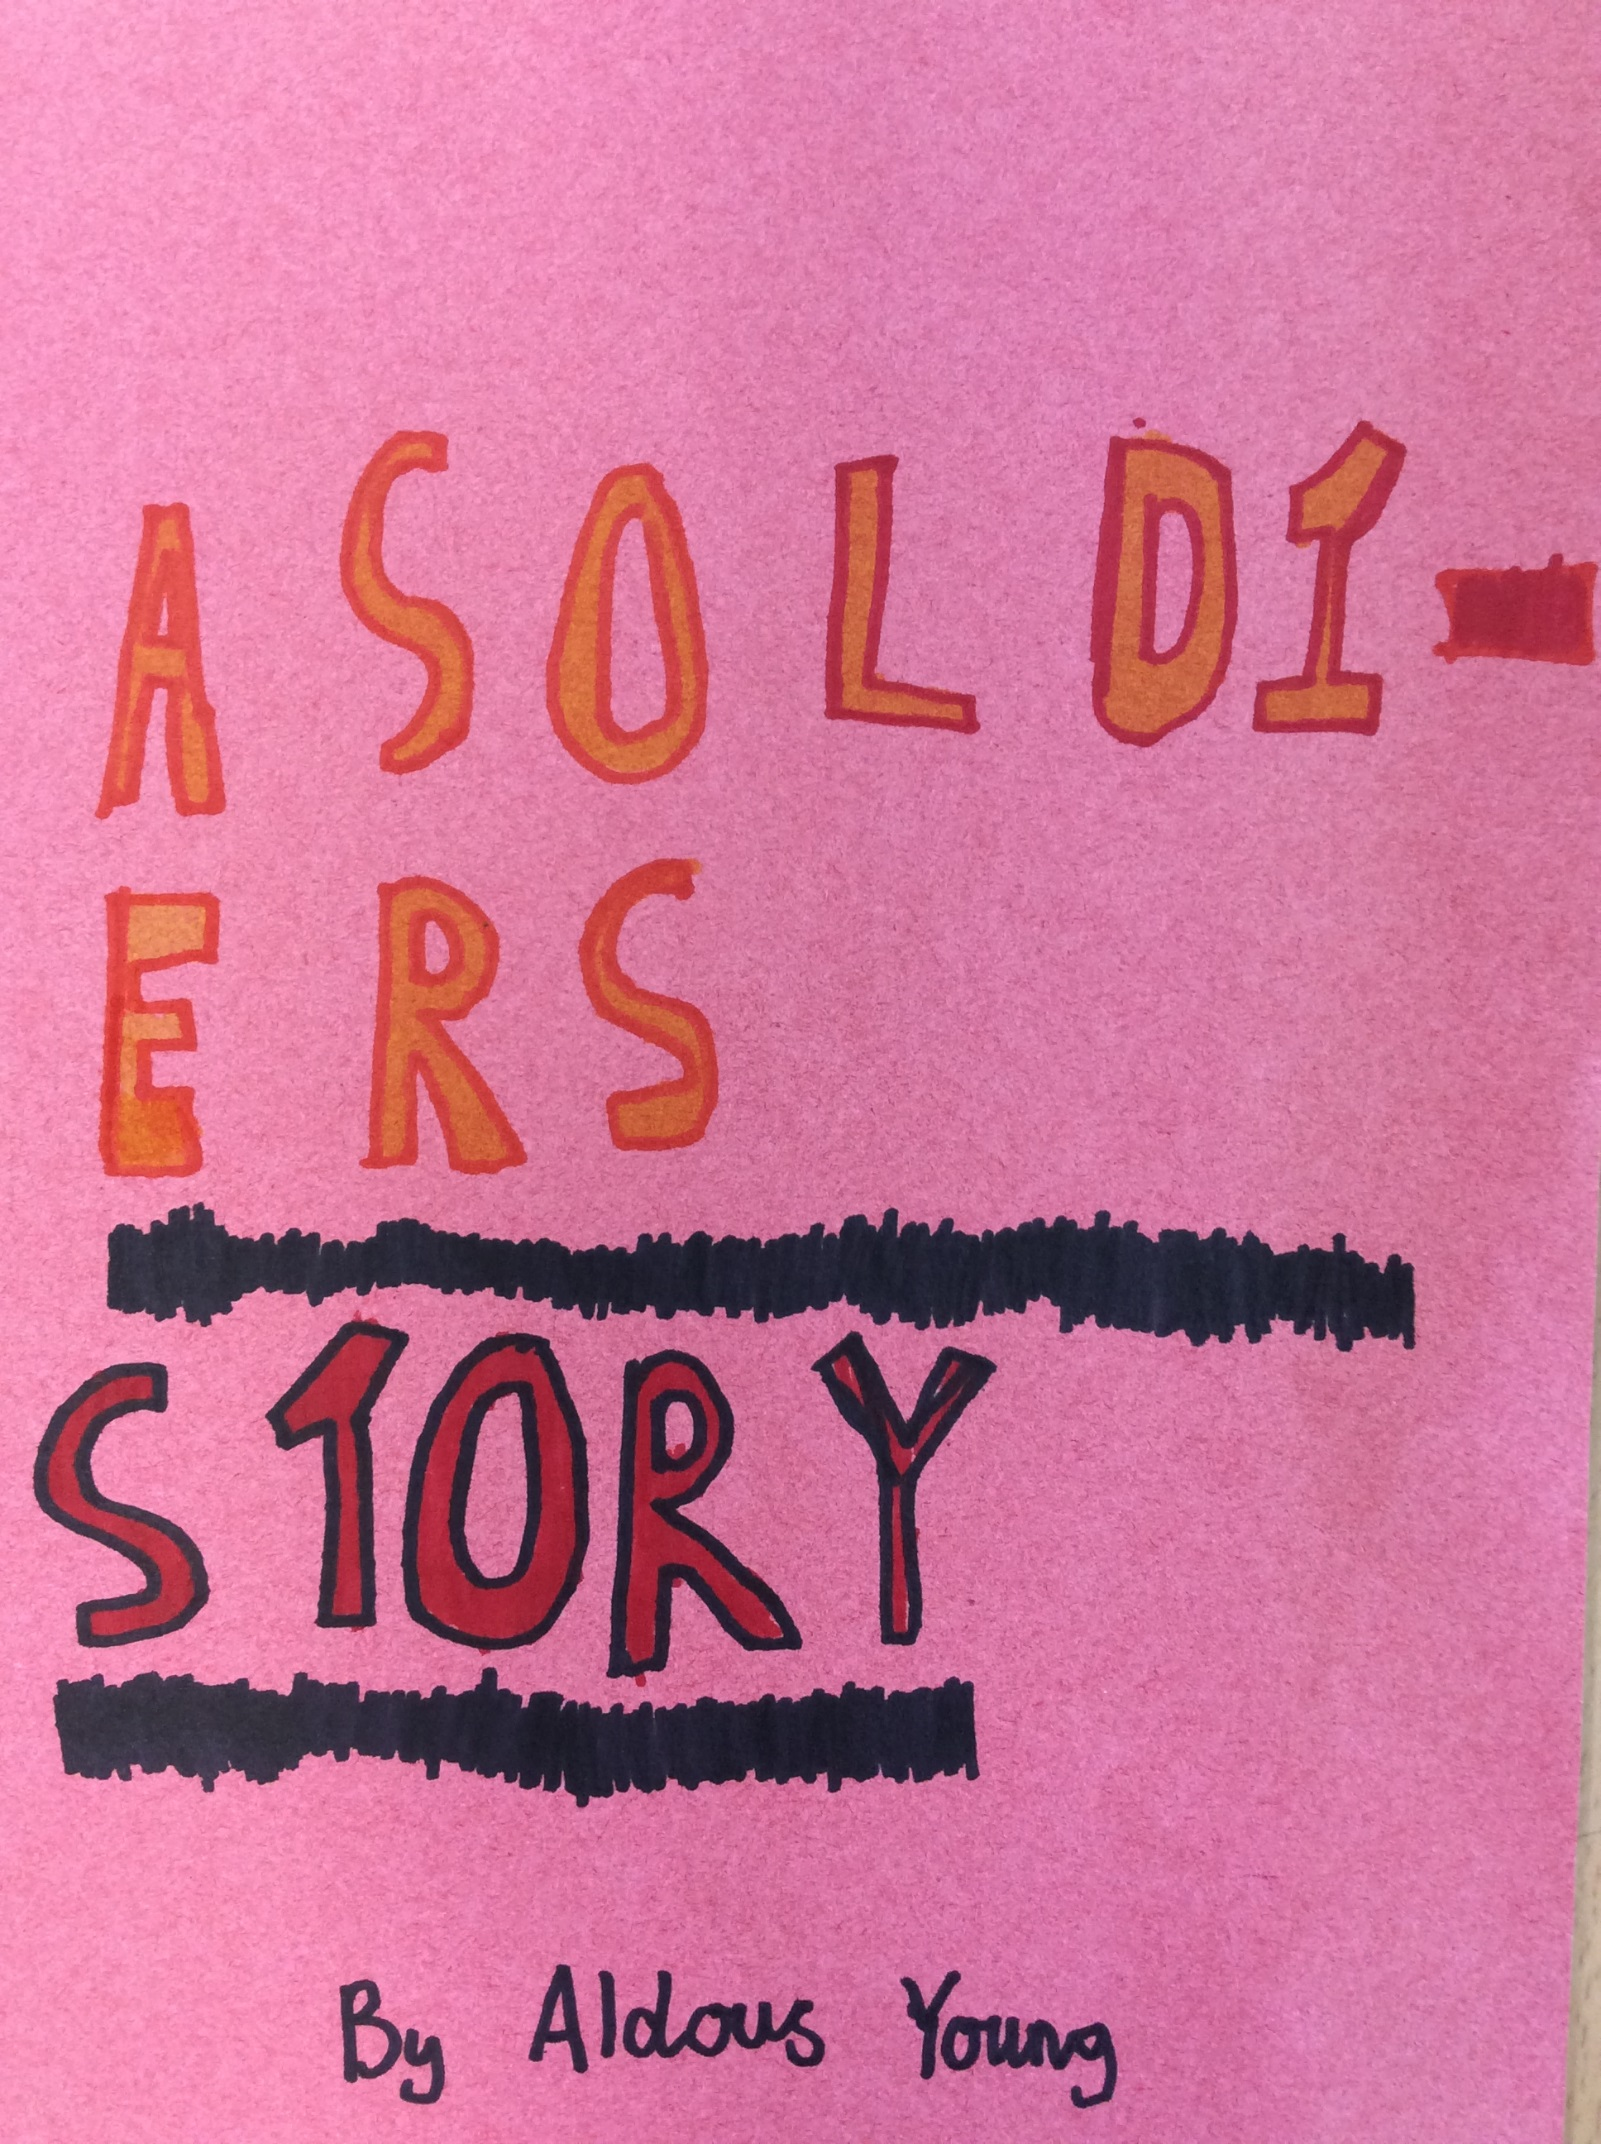 A SOLDI-
ERS
STORY
By Aldous Young